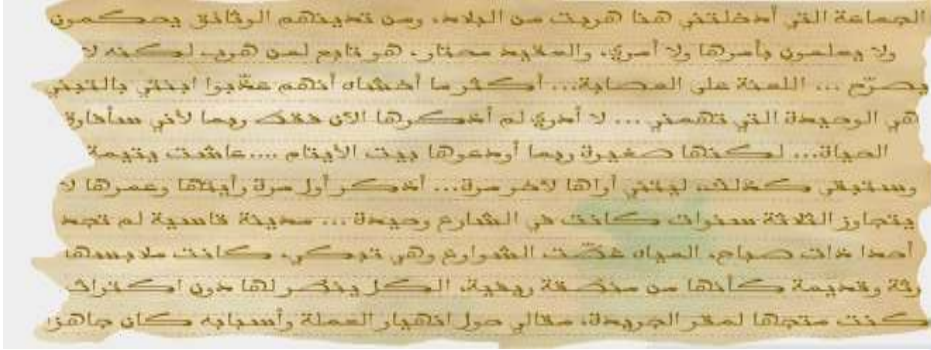 الجماعة التي أدخلتني هنا هربت من البلاد، ومن تحميهم الوثائق يحكمون
ولا يعلمون بأمرها ولا أمري، والعقيد محتار، هو تابع لمن هرب لكنه لا
يصرّح ... اللعنة على العصابة... أكثر ما أخشاه أنهم عذّبوا ابنتي بالتبني
هي الوحيدة التي تهمني ... لا أدري لم أتذكرها الآن فقط ربما لأني سأغادر
الحياة... لكنها صغيرة ربما أودعوها بيت الأيتام .... عاشت يتيمة
وستبقى كذلك، ليتني أراها لآخر مرة... أتذكر أول مرة رأيتها وعمرها لا
يتجاوز الثلاثة سنوات كانت في الشارع وحيدة ... مدينة قاسية لم تجد
أحدا ذات صباح، المياه غطّت الشوارع وهي تبكي، كانت ملابسها
رثة وقديمة كأنها من منطقة ريفية، الكل ينظر لها دون اكتراث
كنت متجها لمقر الجريدة، مقالي حول انهيار العملة وأسبابه كان جاهزا